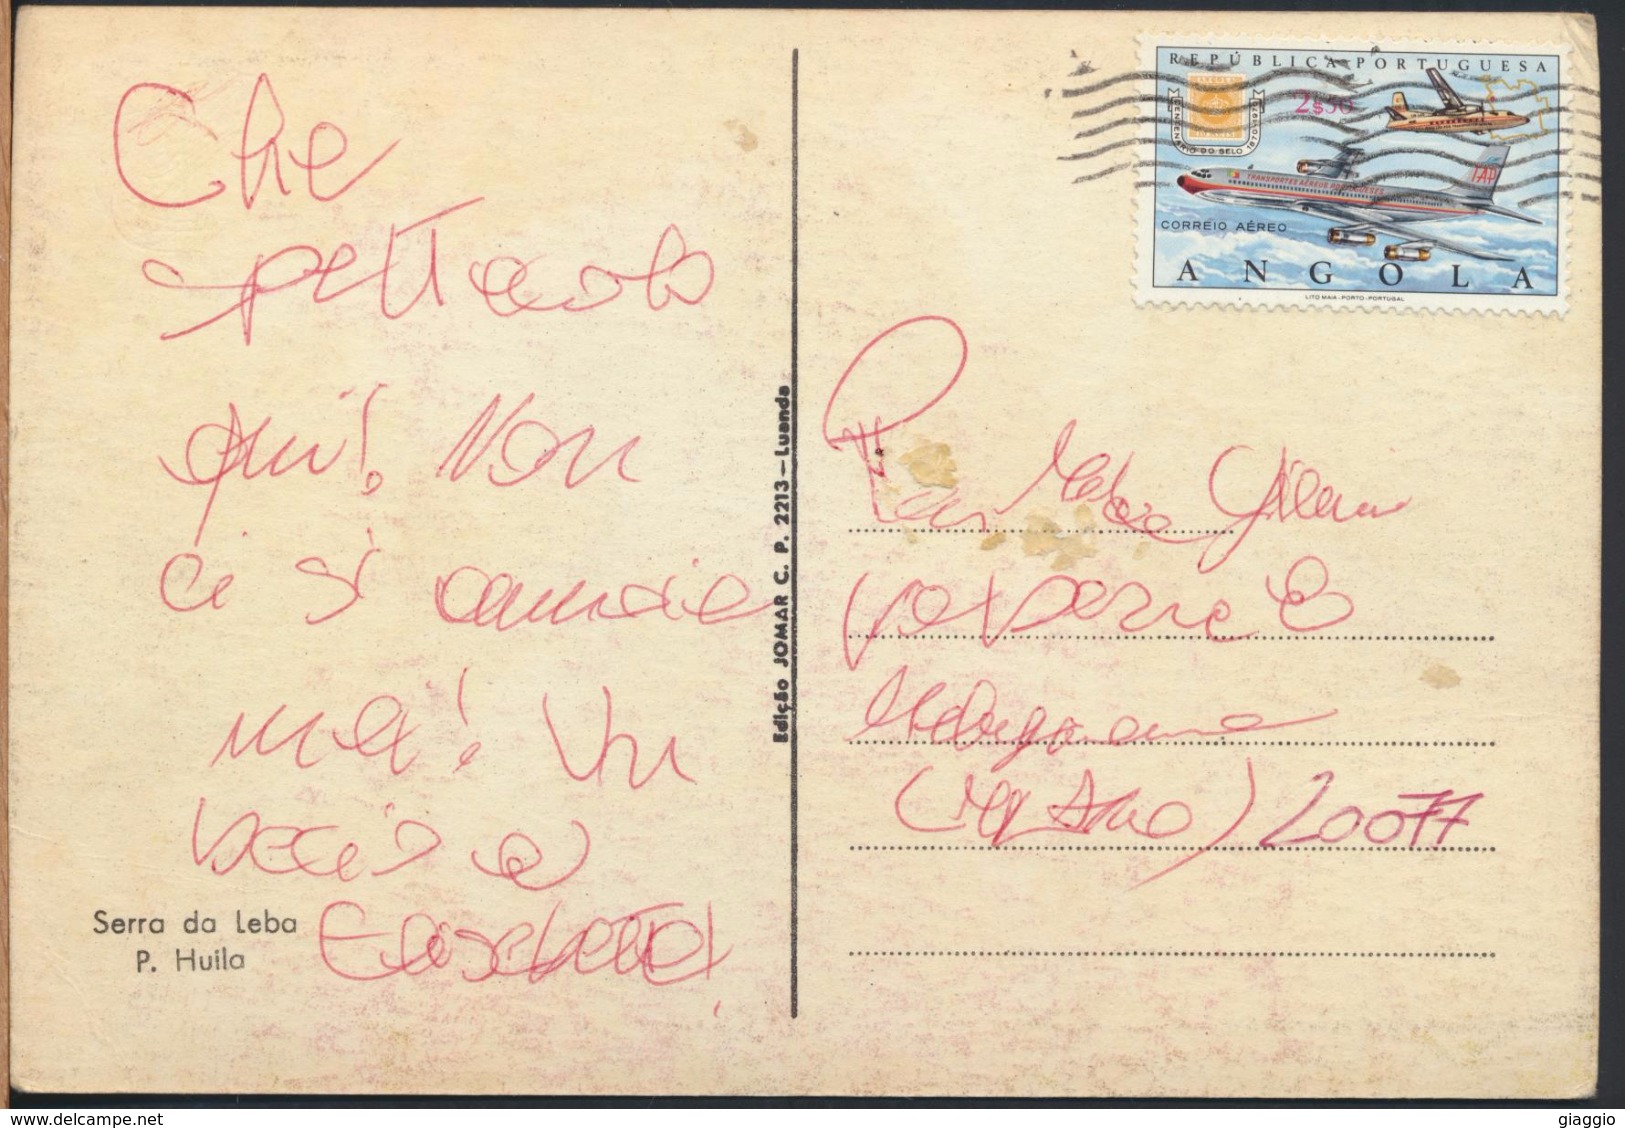 Che
spettacolo
qui! Non
ci si annoia
mai! Un
bacio a
Elisabetta!
Serra da Leba
P. Huila
Edição JOMAR C. P. 2213 — Luanda
REPÚBLICA PORTUGUESA
ANGOLA
CENTENÁRIO DO SELO 1870-1970
2$50
TRANSPORTES AÉREOS PORTUGUESES
TAP
CORREIO AÉREO
ANGOLA
LITO MAIA-PORTO-PORTUGAL
(Milano) 20077
© www.delcampe.net
giaggio